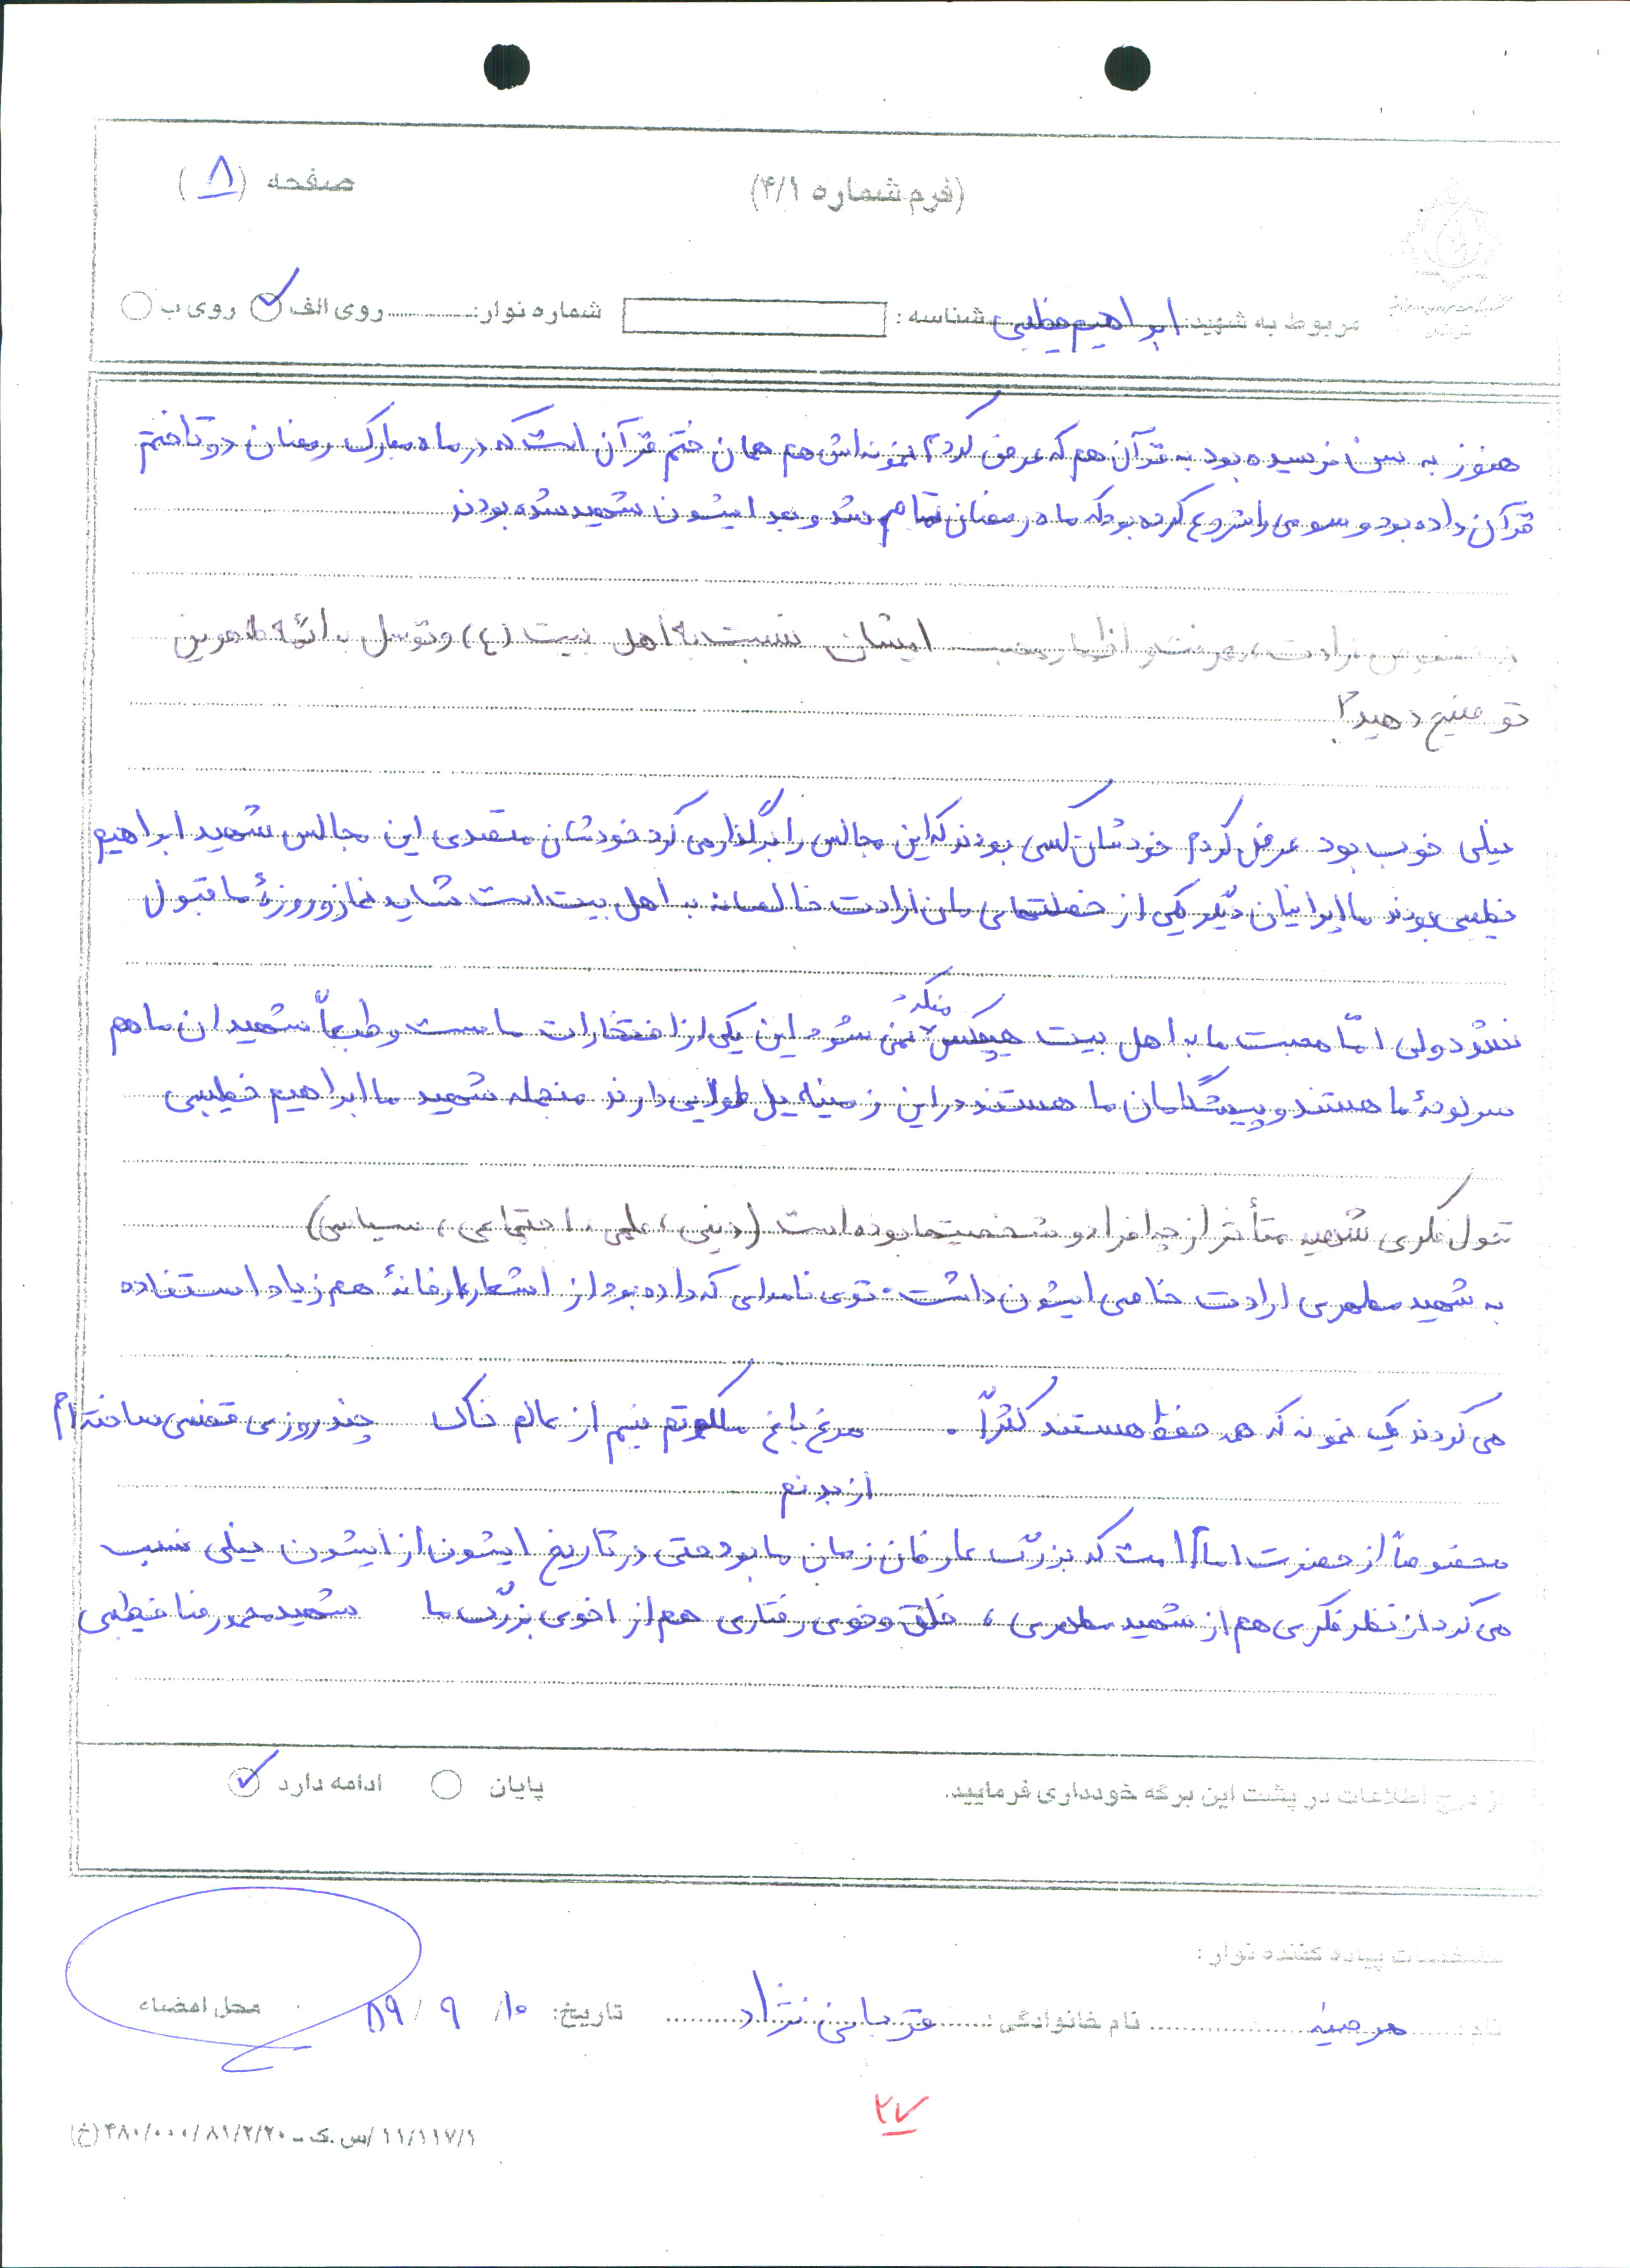 (فرم شماره ۴/۱)
صفحه (۸)
مربوط به شهید: ابراهیم خطیبی شناسه: شماره نوار: روی الف روی ب
هنوز به سن نرسیده بود به قرآن هم که عرض کردم نمونه‌اش هم همان ختم قرآن است که در ماه مبارک رمضان دو تا ختم
قرآن داده بود و سومی را شروع کرده بود که ماه رمضان تمام شد و بعد ایشون شهید شده بودند
ارادت، معرفت و ایشان نسبت به اهل بیت (ع) و توسل به ائمه طاهرین
توضیح دهید؟
خیلی خوب بود عرض کردم خودشان کسی بودند که این مجالس را برگذار می کرد خودشان متصدی این مجالس شهید ابراهیم
خطیبی بودند ما ایرانیان دیگر یکی از خصلتهای مان ارادت خالصانه به اهل بیت است شاید نماز و روزهٔ ما قبول
نشود ولی امّا محبت ما به اهل بیت هیچکس منکر نمی شود این یکی از افتخارات ماست و طبعاً شهیدان ما هم
سرلوحهٔ ما هستند و پیشگامان ما هستند در این زمینه ید طولایی دارند منجمله شهید ما ابراهیم خطیبی
تحول فکری شهید متأثر از چه افراد و شخصیتها بوده است (دینی، علمی، اجتماعی، سیاسی)
به شهید مطهری ارادت خاصی ایشون داشت. توی نامه‌ای که داده بود از اشعار عارفانهٔ هم زیاد استفاده
می کردند یک نمونه که همه حفظ هستند کثراً. مرغ باغ ملکوتم نیم از عالم خاک چند روزی قفسی ساخته‌ام
از بدنم
مخصوصاً از حضرت امام است که بزرگ عارفان زمان ما بود حتی در تاریخ ایشون از ایشون خیلی
می کرد از نظر فکری هم از شهید مطهری، خلق و خوی رفتاری هم از اخوی بزرگ ما شهید محمد رضا خطیبی
از درج اطلاعات در پشت این برگه خودداری فرمایید. پایان ادامه دارد
مشخصات پیاده کننده نوار:
نام: مرضیه نام خانوادگی: قربانی نژاد تاریخ: ۱۰/ ۹ / ۸۹ محل امضاء
۲۷
۱۱/۱۱۷/۱/س.ک-۴۸۰/۰۰۰/۸۱/۲/۲۰(خ)